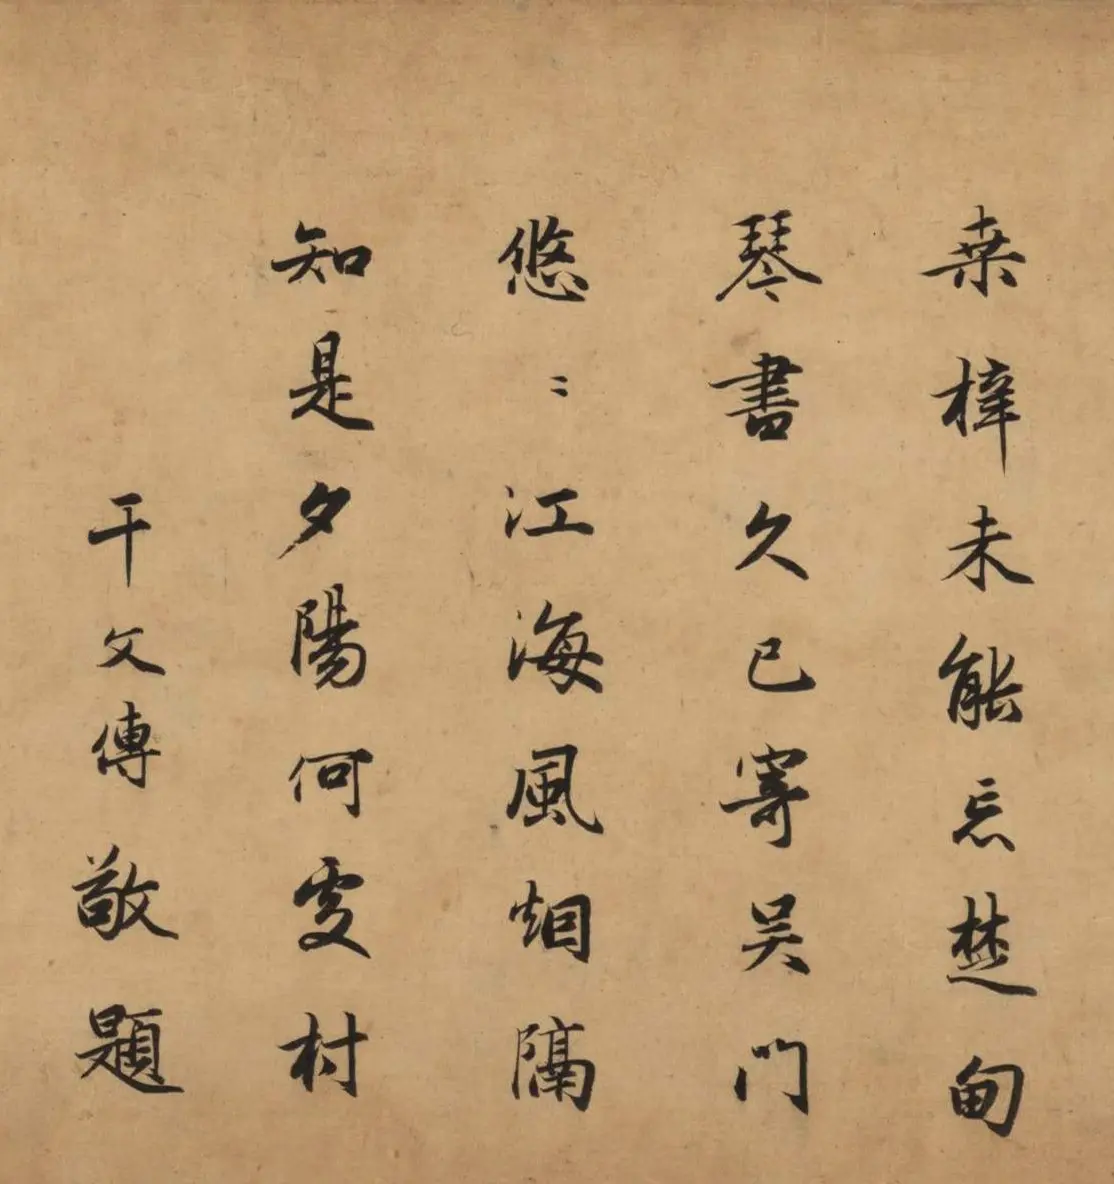 桒梓未能忘楚甸
琴書久已寄吴門
悠〻江海風烟隔
知是夕陽何處村
干文傳敬題